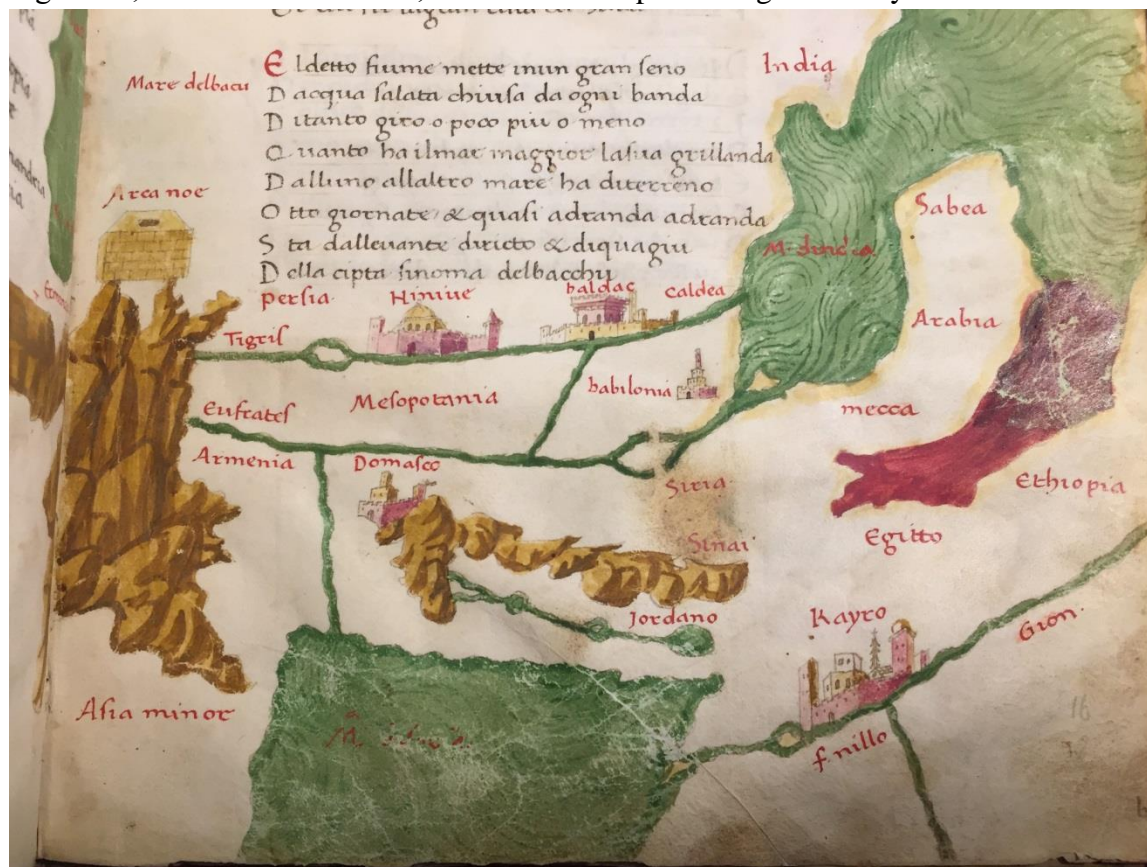 Mare delbacu
E ldetto fiume mette inun gran seno
D acqua salata chiusa da ogni banda
D itanto giro o poco piu o meno
Q uanto ha ilmar maggior lasua grillanda
D alluno allaltro mare ha diterreno
O tto giornate & quasi adranda adranda
S ta dallevante diricto & diquagiu
D ella cipta sinoma delbacchu
India
Arca noe
Sabea
M. dindia
persia
Ninive
baldac
Caldea
Tigris
Arabia
babilonia
Mesopotania
Eufrates
mecca
Armenia
Domasco
Siria
Ethiopia
Egitto
Sinai
Jordano
Kayro
Gion
Asia minor
f. nillo
16